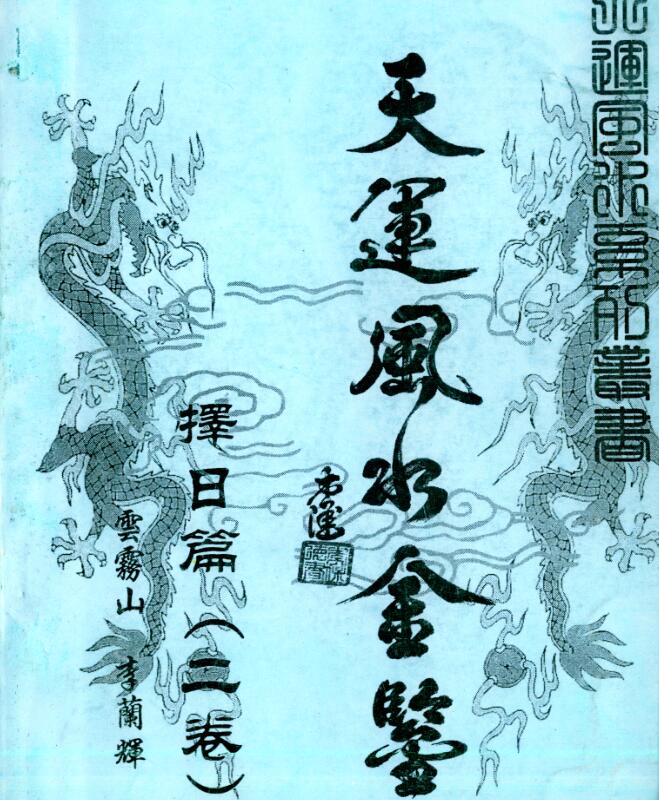 運風水系列叢書
天運風水金鑒
擇日篇（二卷）
雲霧山 李蘭輝